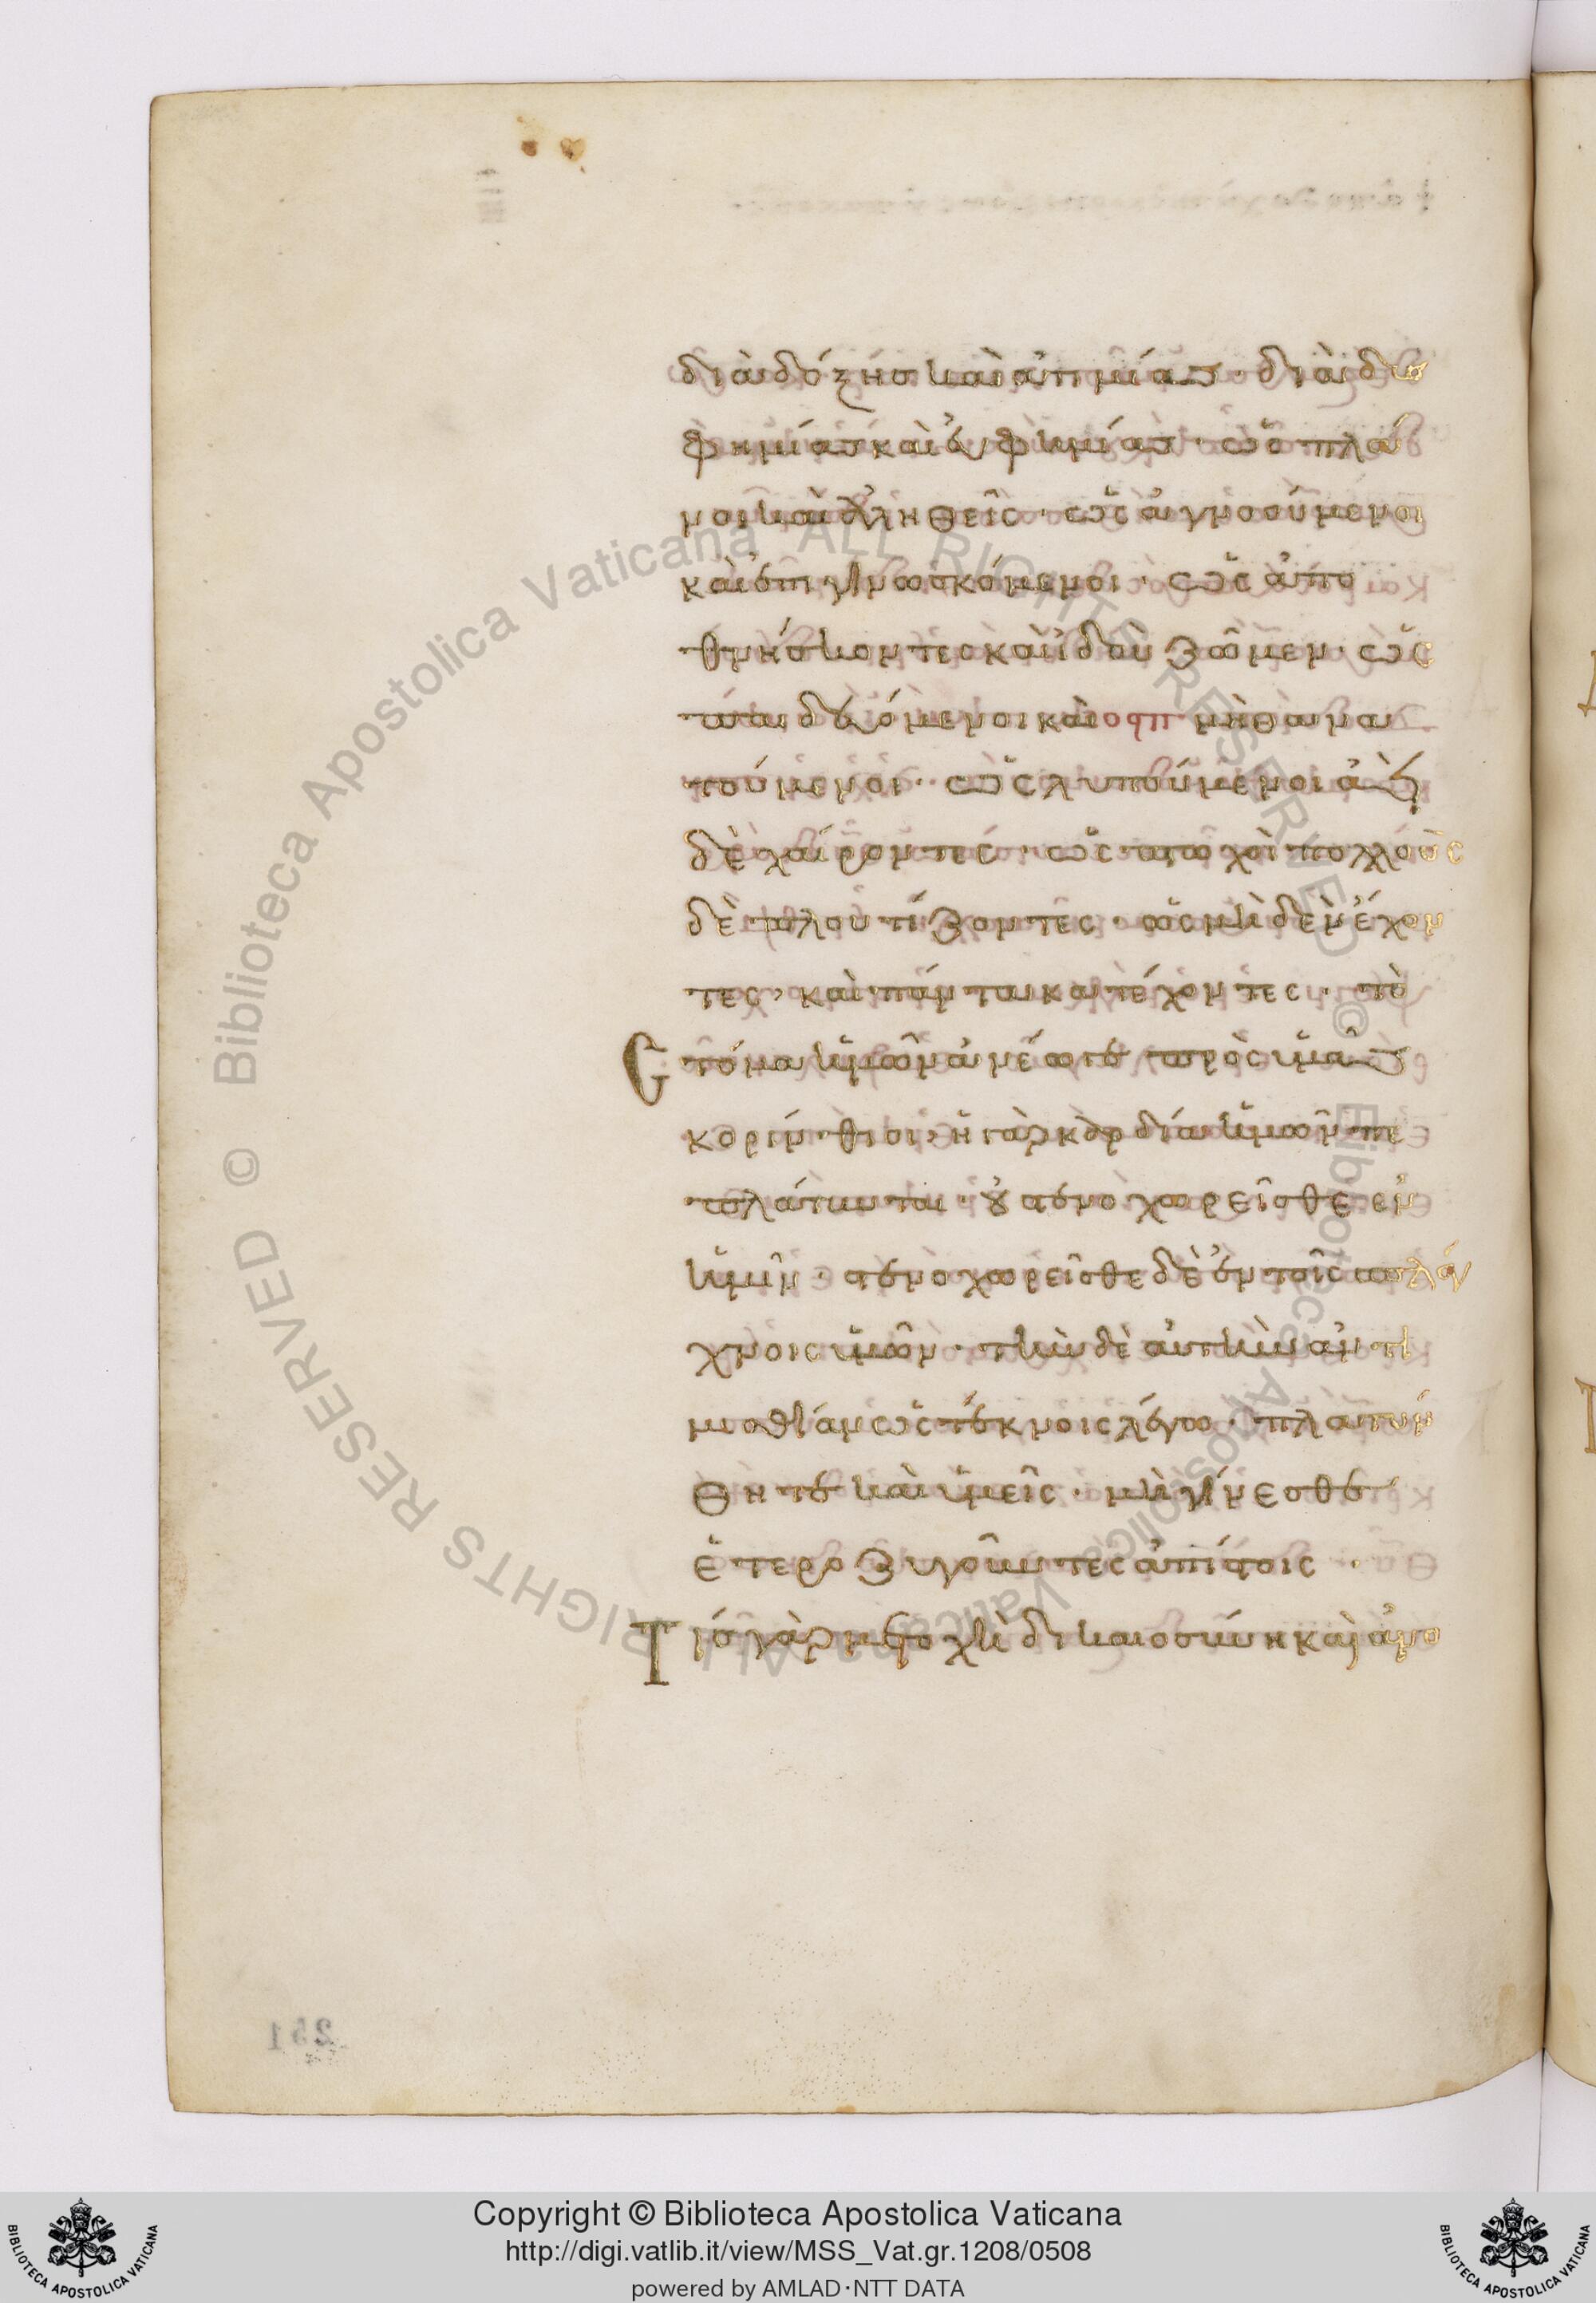 διὰ δόξησ καὶ ἀτιμίας· διὰ δυσ
φημίας καὶ εὐφημίας· ὡς πλά
νοι καὶ ἀληθεῖς· ὡς ἀγνοούμενοι
καὶ ἐπιγινωσκόμενοι· ὡς ἀπο
θνήσκοντες καὶ ἰδοὺ ζῶμεν· ὡς
παιδευόμενοι καὶ μὴ θανα
τούμενοι· ὡς λυπούμενοι ἀεὶ
δὲ χαίροντες· ὡς πτωχοὶ πολλοὺς
δὲ πλουτίζοντες· ὡς μὴδὲν ἔχον
τες, καὶ πάντα κατέχοντες· τὸ
στόμα ἡμῶν ἀνέωγε πρὸς ὑμᾶς
κορίνθιοι, ἡ γὰρ καρδία ἡμῶν πε
πλάτυνται· οὐ στενοχωρεῖσθε ἐν
ἡμῖν· στενοχωρεῖσθε δὲ ἐν τοῖς σπλάγ
χνοις ὑμῶν· τὴν δὲ αὐτὴν ἀντι
μισθίαν ὡς τέκνοις λέγω· πλατύν
θητε καὶ ὑμεῖς· μὴ γίνεσθε
ἑτεροζυγοῦντες ἀπίστοις
Τίς γὰρ μετοχὴ δικαιοσύνη καὶ ἀνο
Copyright © Biblioteca Apostolica Vaticana
http://digi.vatlib.it/view/MSS_Vat.gr.1208/0508
powered by AMLAD·NTT DATA